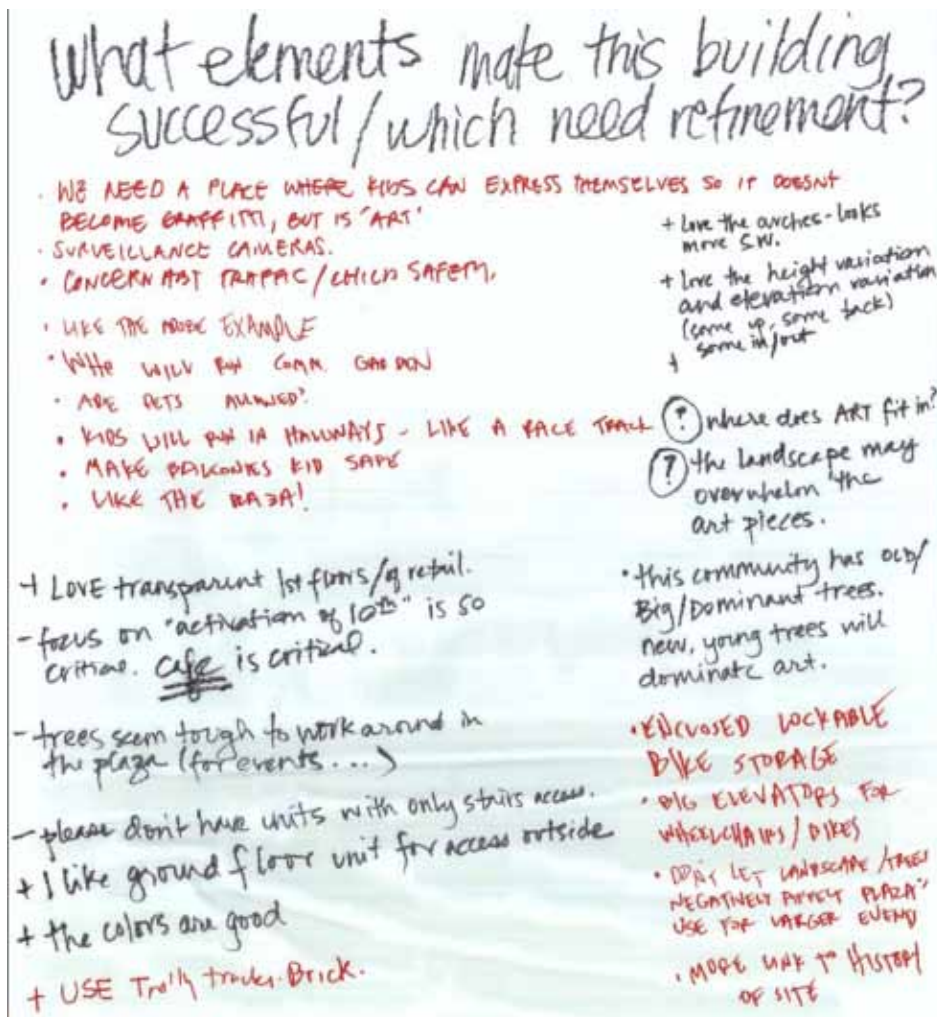 What elements make this building
successful/which need refinement?
· WE NEED A PLACE WHERE KIDS CAN EXPRESS THEMSELVES SO IT DOESNT
BECOME GRAFFITTI, BUT IS "ART"
· SURVEILLANCE CAMERAS.
· CONCERN ABT TRAFFIC/CHILD SAFETY.
· LIKE THE ADOBE EXAMPLE
· WHO WILL RUN COMM. GARDEN
· ARE PETS ALLOWED?
· KIDS WILL RUN IN HALLWAYS - LIKE A RACE TRACK
· MAKE BALCONIES KID SAFE
· LIKE THE
+ LOVE transparent 1st floors/ retail.
- focus on "activation of 10th" is so
critical. cafe is critical.
- trees seem tough to work around in
the plaza (for events...)
- please don't have units with only stairs access.
+ I like ground floor unit for access outside
+ the colors are good
+ USE Trolly tracks. Brick.
+ Love the arches - looks
more S.W.
+ love the height variation
and elevation variation
(some up, some back)
some in/out
+
? where does ART fit in?
? the landscape may
overwhelm the
art pieces.
· this community has OLD/
Big/Dominant trees.
new, young trees will
dominate art.
· ENCLOSED LOCKABLE
BIKE STORAGE
· BIG ELEVATORS FOR
WHEELCHAIRS/BIKES
· DON'T LET LANDSCAPE/TREES
NEGATIVELY AFFECT PLAZA"
USE FOR LARGER EVENT
· MORE LINK TO HISTORY
OF SITE